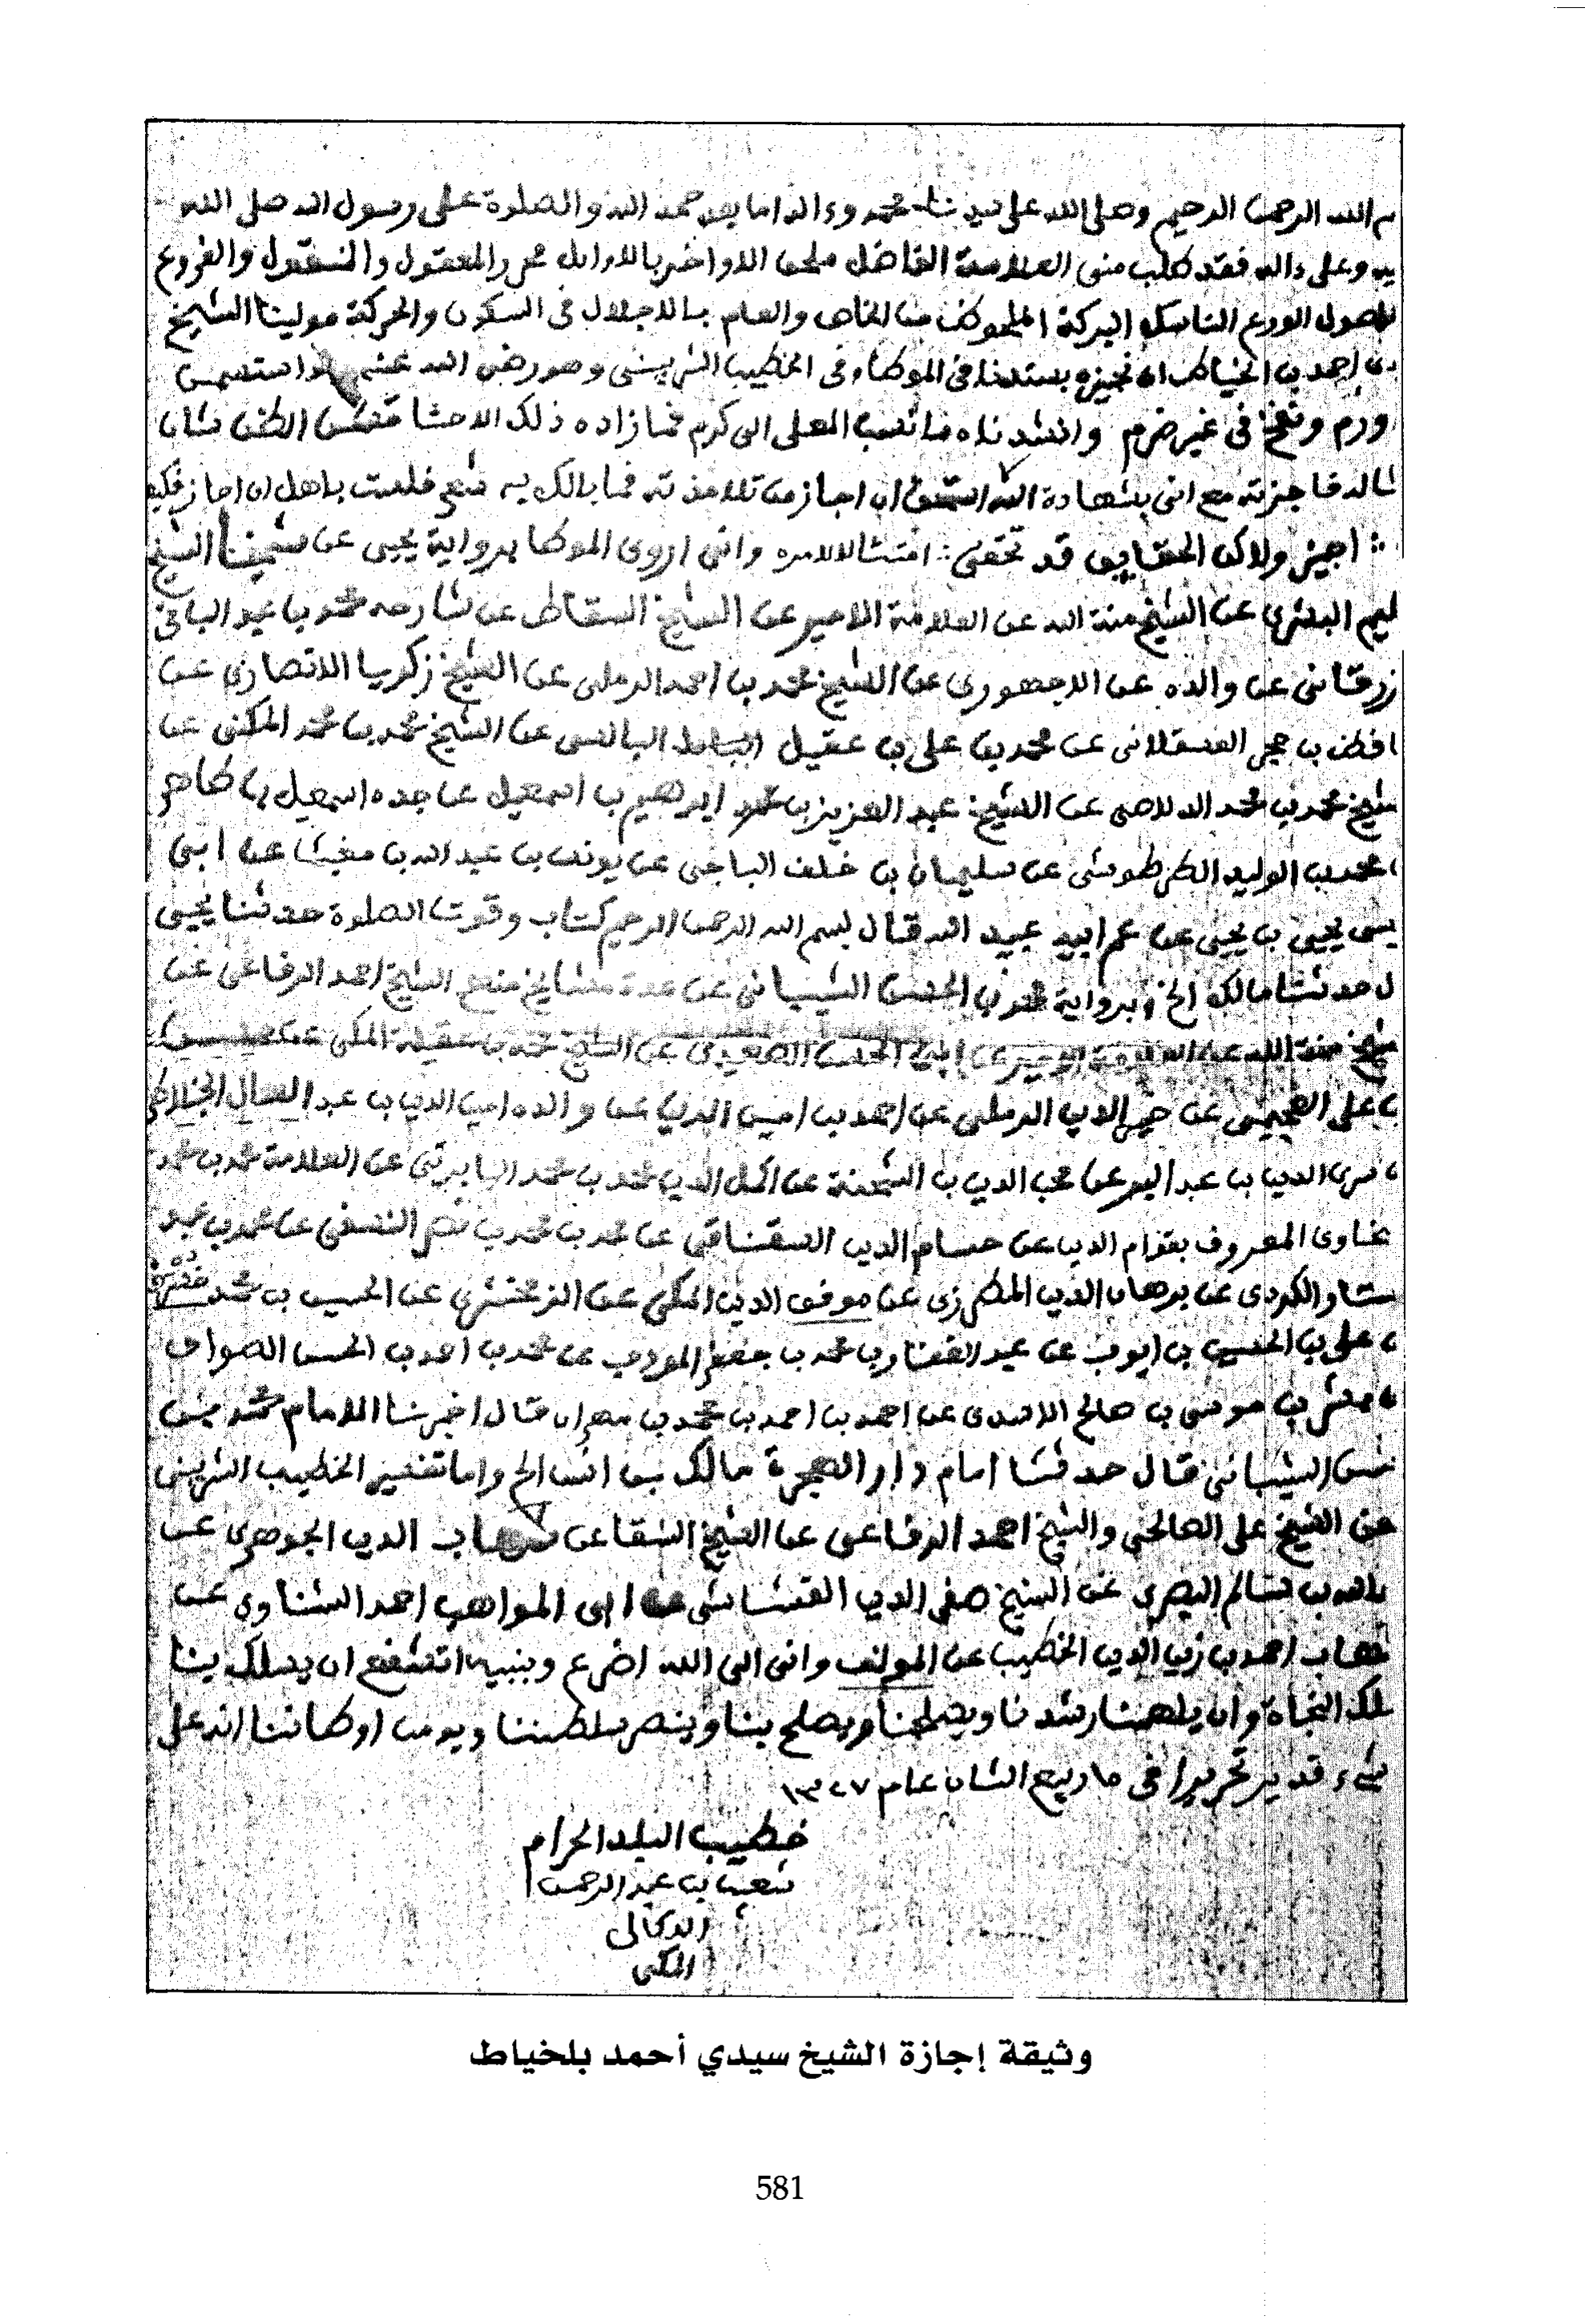 م الله الرحمن الرحيم وصلى الله على سيدنا محمد وءاله اما بعد حمد الله والصلوة على رسول الله صلى الله
يه وعلى ءاله فقد طلب منى العلامة الفاضل ملحق الاواخر بالاوائل محرر المعقول والمنقول والفروع
الاصول الورع الناسك البركة الملحوظ من الخاص والعام بالاجلال فى السكون والحركة مولينا الشيخ
دى احمد بن الخياط ان نجيزه بسندنا فى الموطا وفى الخطيب الشربينى وهو رضى الله عنه قد استسمن
ورم ونفخ فى غير ضرم وانشدناه ما نسب المعلى الى كرم فما زاده ذلك الا حسن الظن
فاجزته مع انى بشهادة الله استحق ان اجاز من تلامذته فما بالك به فلست باهل ان اجاز فكيف
ان اجيز ولاكن الحقايق قد تخفى امتثالا لامره وانى اروى الموطا برواية يحيى عن شيخنا الشيخ
ليم البشرى عن الشيخ منة الله عن العلامة الامير عن الشيخ السقاط عن شارحه محمد بن عبد الباقى
زرقانى عن والده عن الاجهورى عن الشيخ محمد بن احمد الرملى عن الشيخ زكريا الانصارى عن
افظ بن حجر العسقلانى عن محمد بن على بن عقيل البالسى عن الشيخ محمد بن محمد المكنى عن
شيخ محمد بن محمد الدلاصى عن الشيخ عبد العزيز بن محمد ابرهيم بن اسمعيل عن جده اسمعيل بن طاهر
محمد بن الوليد الطرطوشى عن سليمان بن خلف الباجى عن يونس بن عبد الله بن مغيث عن ابى
يسى يحيى بن يحيى عن عم ابيه عبيد الله قال بسم الله الرحمن الرحيم كتاب وقوت الصلوة حدثنا يحيى
ل حدثنا مالك الخ وبرواية محمد بن الحسن الشيبانى عن عدة مشايخ منهم الشيخ احمد الرفاعى عن
شيخ منة الله عن العلامة الامير عن ابى الحسن الصعيدى عن الشيخ محمد بن عقيلة المكى عن حسن
بن على العجيمى عن خير الدين الرملى عن احمد بن امين الدين عن والده امين الدين بن عبد العال
سرى الدين بن عبد البر عن محب الدين بن الشحنة عن اكمل الدين محمد بن محمد البابرتى عن العلامة محمد بن محمد
المعروف بقوام الدين عن حسام الدين السقناقى عن محمد بن محمد بن نصر النسفى عن محمد بن عبد
ستار الكردى عن برهان الدين المطرزى عن موفق الدين المكى عن الزمخشرى عن الحسين بن محمد
على بن الحسين بن ايوب عن عبد الغفار بن محمد بن جعفر المودب عن محمد بن احمد بن الحسن الصواف
بشر بن موسى بن صالح الاسدى عن احمد بن احمد بن محمد بن مهران قال اخبرنا الامام محمد بن
حسن الشيبانى قال حدثنا امام دار الهجرة مالك بن انس الخ واما تفسير الخطيب الشربينى
عن الشيخ على الصالحى والشيخ احمد الرفاعى عن الشيخ السقا عن شهاب الدين الجوهرى عن
بن سالم البصرى عن الشيخ صفى الدين القشاشى عن ابى المواهب احمد الشناوى عن
احمد بن زين الدين الخطيب عن المولف وانى الى الله اضرع وبنبيه اتشفع ان يسلك بنا
لك النجاة وان يلهمنا رشدنا ويصلحنا ويصلح بنا وينصر سلطاننا ويومن اوطاننا انه على
شىء قدير تحريرا فى ١٥ ربيع الثان عام ١٣٢٧
خطيب البلد الحرام
شعيب بن عبد الرحمن
الدكالى
المكى
وثيقة إجازة الشيخ سيدي أحمد بلخياط
581